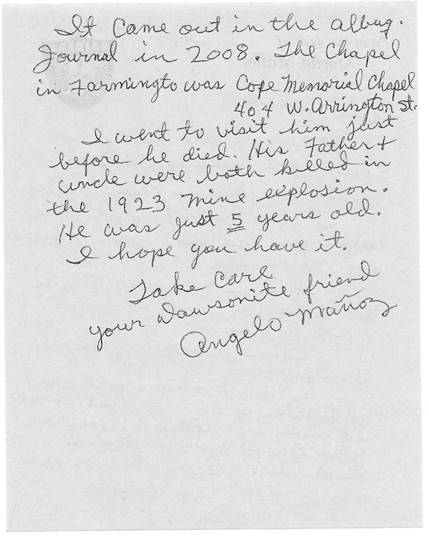 It came out in the albuq.
Journal in 2008. The Chapel
in Farmingto was Cope Memorial Chapel
404 W. Arrington St.
I went to visit him just
before he died. His Father +
uncle were both killed in
the 1923 mine explosion.
He was just 5 years old.
I hope you have it.
Take Care
your Dawsonite friend
Angelo Muñoz